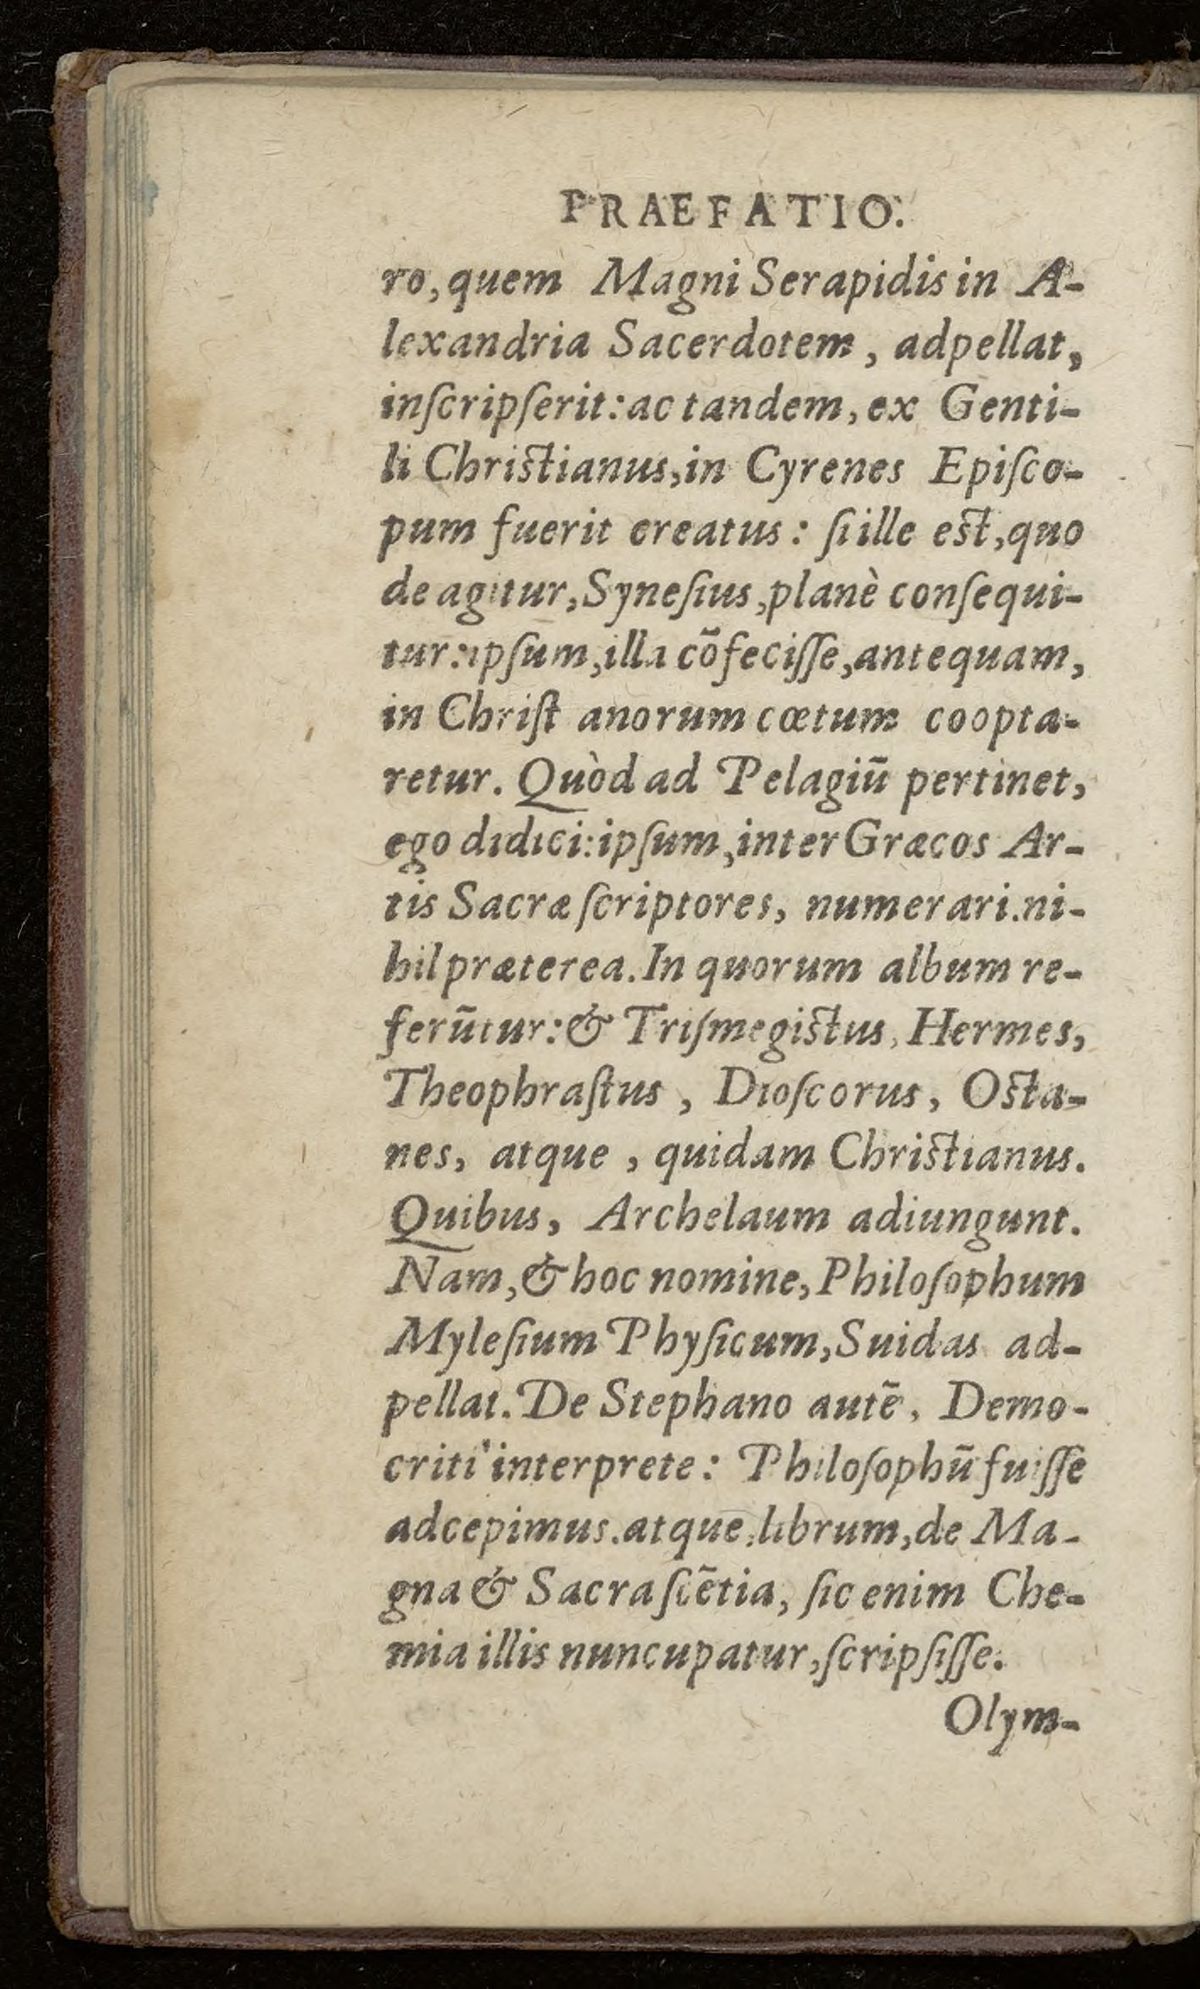 PRAEFATIO.
ro, quem Magni Serapidis in A-
lexandria Sacerdotem, adpellat,
inſcripſerit: ac tandem, ex Genti-
li Chriſtianus, in Cyrenes Epiſco-
pum fuerit creatus: ſi ille eſt, quo
de agitur, Syneſius, planè conſequi-
tur: ipſum, illa cõfeciſſe, antequam,
in Chriſt anorum cœtum coopta-
retur. Quòd ad Pelagiũ pertinet,
ego didici: ipſum, inter Græcos Ar-
tis Sacræ ſcriptores, numerari. ni-
hil præterea. In quorum album re-
ferũtur: & Triſmegiſtus, Hermes,
Theophraſtus, Dioſcorus, Oſta-
nes, atque, quidam Chriſtianus.
Quibus, Archelaum adiungunt.
Nam, & hoc nomine, Philoſophum
Myleſium Phyſicum, Suidas ad-
pellat. De Stephano autẽ, Demo-
criti interprete: Philoſophũ fuiſſe
adcepimus. atque, librum, de Ma-
gna & Sacra ſciẽtia, ſic enim Che-
mia illis nuncupatur, ſcripſiſſe.
Olym-